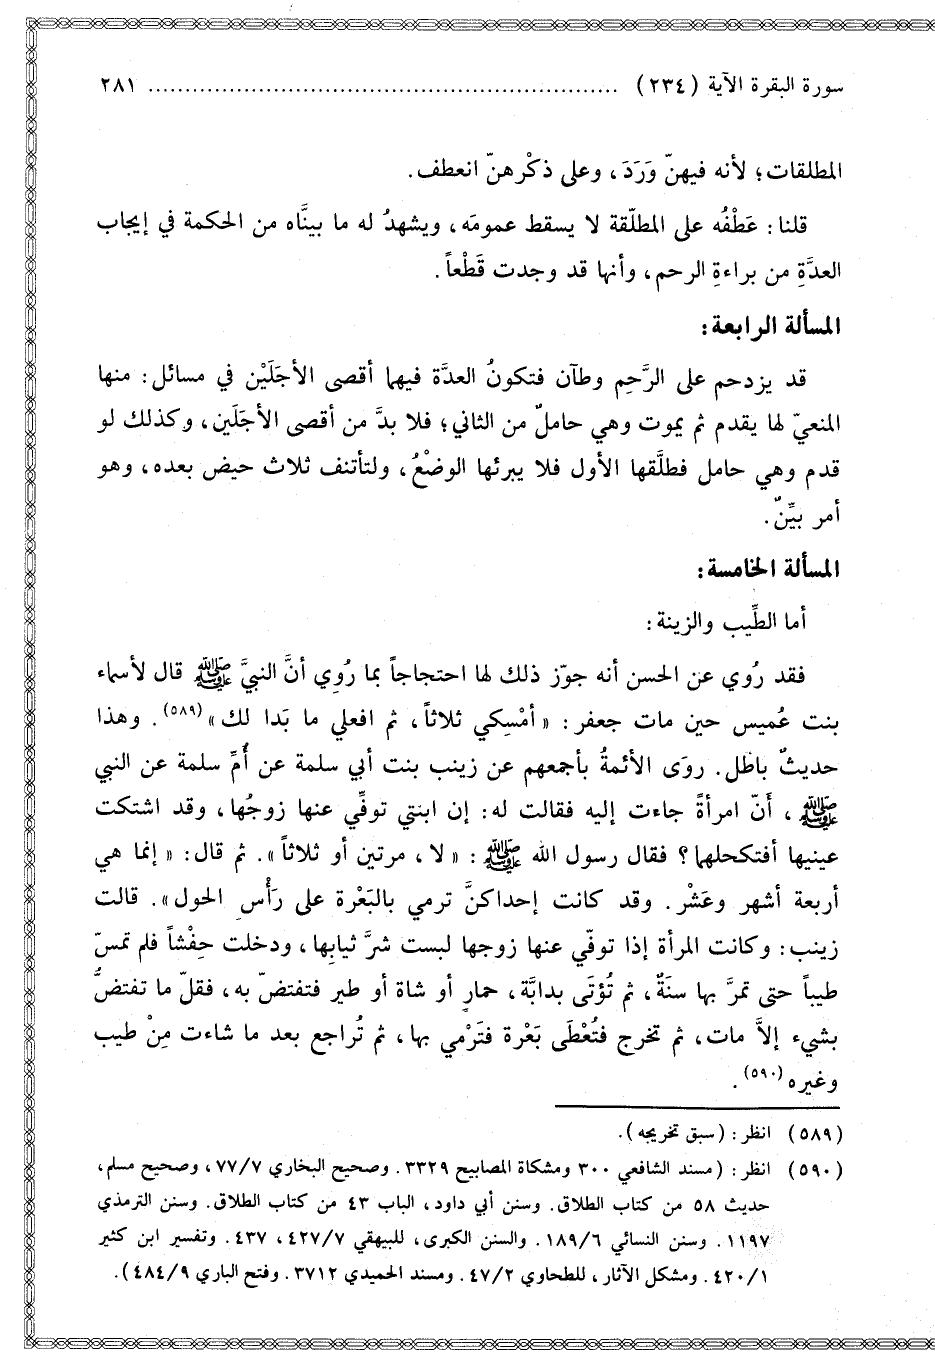 سورة البقرة الآية ( ٢٣٤ ) ............................................................ ٢٨١
المطلقات؛ لأنه فيهنّ وَرَدَ، وعلى ذكْرهنّ انعطف.
قلنا: عَطْفُه على المطلّقة لا يسقط عمومَه، ويشهدُ له ما بينَّاه من الحكمة في إيجاب
العدَّةِ من براءةِ الرحم، وأنها قد وجدت قَطْعاً.
المسألة الرابعة:
قد يزدحم على الرَّحِم وطآن فتكونُ العدّة فيهما أقصى الأجَلَيْن في مسائل: منها
المنعيّ لها يقدم ثم يموت وهي حاملٌ من الثاني؛ فلا بدَّ من أقصى الأجَلَين، وكذلك لو
قدم وهي حامل فطلَّقها الأول فلا يبرئها الوضْعُ، ولتأتنف ثلاث حيض بعده، وهو
أمر بيِّنٌ.
المسألة الخامسة:
أما الطِّيب والزينة:
فقد رُوي عن الحسن أنه جوّز ذلك لها احتجاجاً بما رُوِي أنَّ النبيَّ ﷺ قال لأسماء
بنت عُميس حين مات جعفر: «أمْسِكي ثلاثاً، ثم افعلي ما بَدا لك»(٥٨٩). وهذا
حديثٌ باطل. روَى الأئمةُ بأجمعهم عن زينب بنت أبي سلمة عن أُمِّ سلمة عن النبي
ﷺ، أَنّ امرأةً جاءت إليه فقالت له: إن ابنتي توفِّي عنها زوجُها، وقد اشتكت
عينيها أفتكحلهما؟ فقال رسول الله ﷺ: «لا، مرتين أو ثلاثاً». ثم قال: «إنما هي
أربعة أشهر وعَشْر. وقد كانت إحداكنَّ ترمي بالبَعْرة على رَأْسِ الحول». قالت
زينب: وكانت المرأة إذا توفّي عنها زوجها لبست شرَّ ثيابِها، ودخلت حِفْشاً فلم تمسّ
طيباً حتى تمرَّ بها سنَةٌ، ثم تُؤتَى بدابَّة، حمارٍ أو شاة أو طير فتفتضّ به، فقلّ ما تفتضُّ
بشيء إلاَّ مات، ثم تخرج فتُعْطَى بَعْرة فتَرْمي بها، ثم تُراجع بعد ما شاءت مِنْ طيب
وغيره(٥٩٠).
(٥٨٩) انظر: (سبق تخريجه).
(٥٩٠) انظر: (مسند الشافعي ٣٠٠ ومشكاة المصابيح ٣٣٢٩. وصحيح البخاري ٧٧/٧، وصحيح مسلم،
حديث ٥٨ من كتاب الطلاق. وسنن أبي داود، الباب ٤٣ من كتاب الطلاق. وسنن الترمذي
١١٩٧. وسنن النسائي ١٨٩/٦. والسنن الكبرى، للبيهقي ٤٢٧/٧، ٤٣٧. وتفسير ابن كثير
٤٢٠/١. ومشكل الآثار، للطحاوي ٤٧/٢. ومسند الحميدي ٣٧١٢. وفتح الباري ٤٨٤/٩).